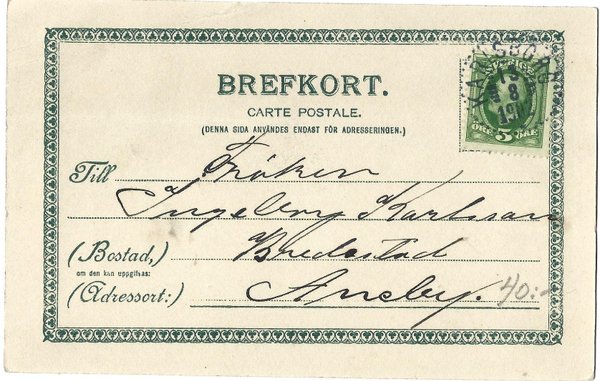 BREFKORT.
CARTE POSTALE.
(DENNA SIDA ANVÄNDES ENDAST FÖR ADRESSERINGEN.)
SVERIGE
KARLSBORG
13
8
ÖRE 5 ÖRE
Till Fröken
Ingeborg Karlsson
(Bostad,) Bredestad
om den kan uppgifvas:
(Adressort:) Aneby.
40:-